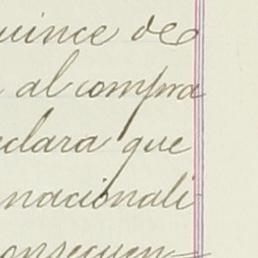 uince de
al compra
eclara que
nacionali-
onsecuen-